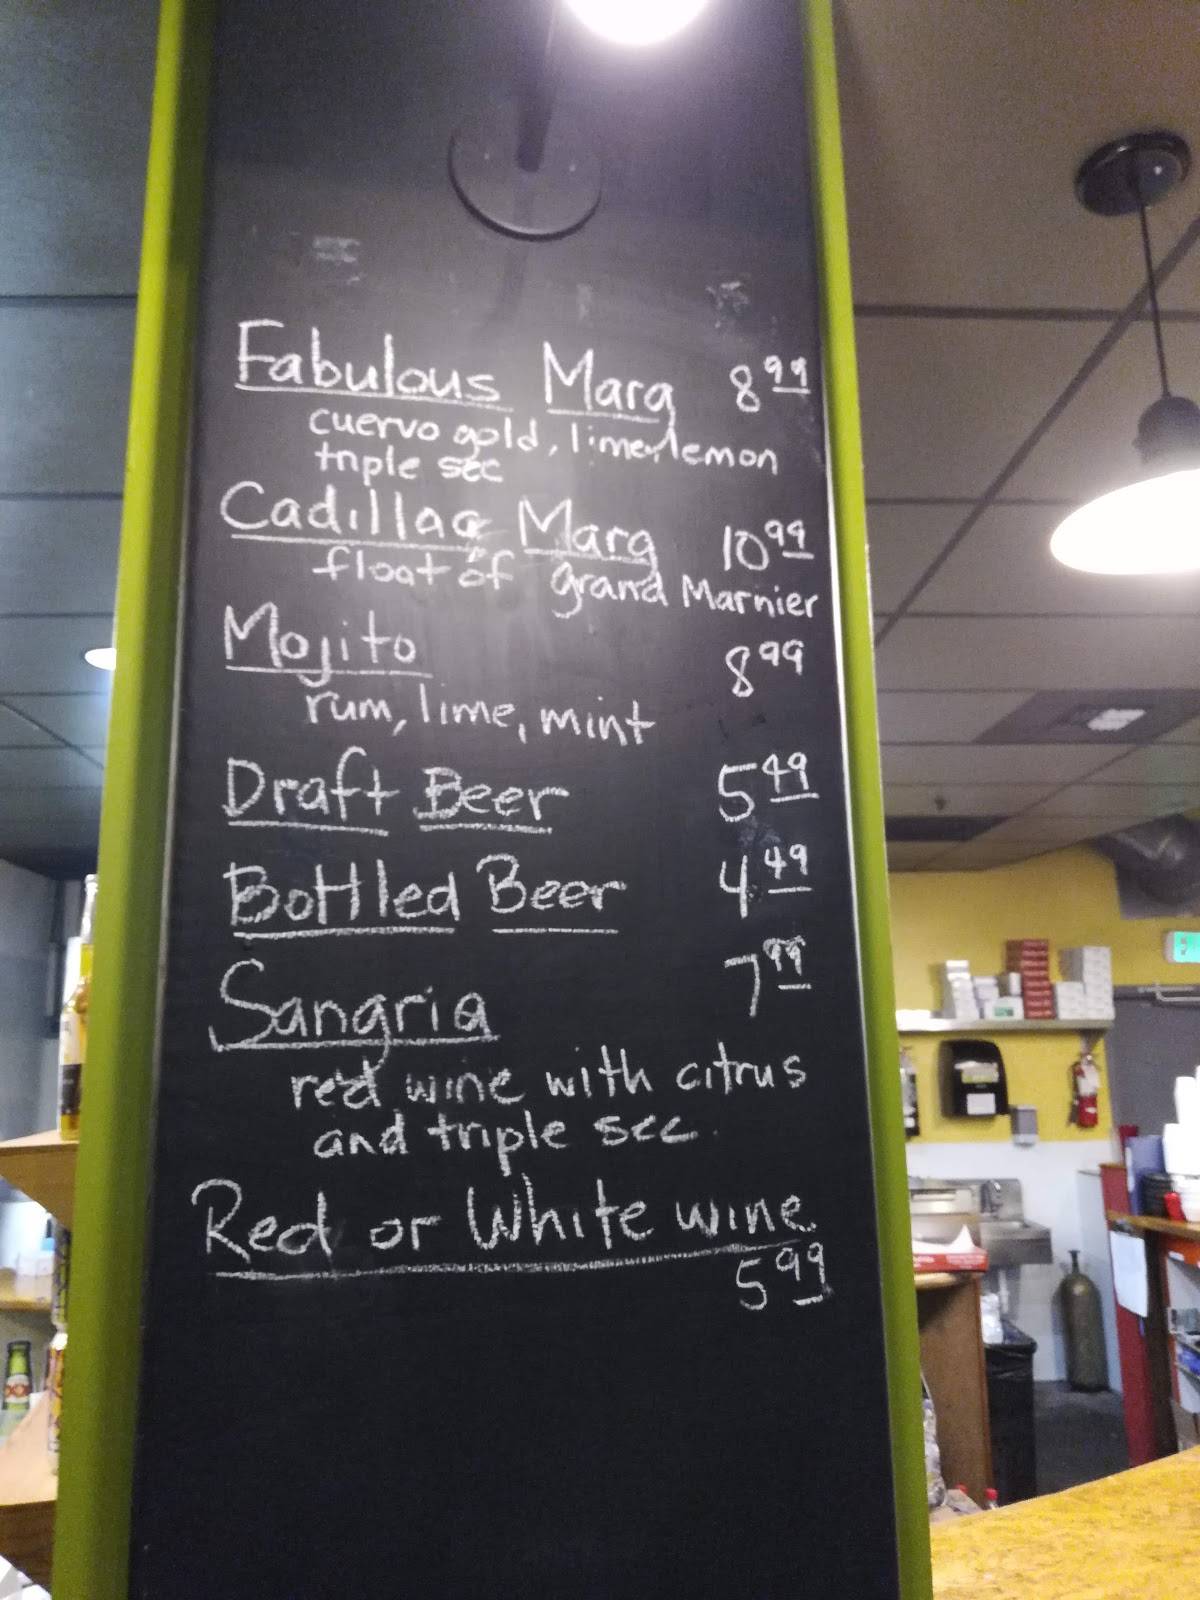 Fabulous Marg 8.99
cuervo gold, lime, lemon
triple sec
Cadillac Marg 10.99
float of grand Marnier
Mojito 8.99
rum, lime, mint
Draft Beer 5.49
Bottled Beer 4.49
Sangria 7.99
red wine with citrus
and triple sec.
Red or White wine
5.99
XX